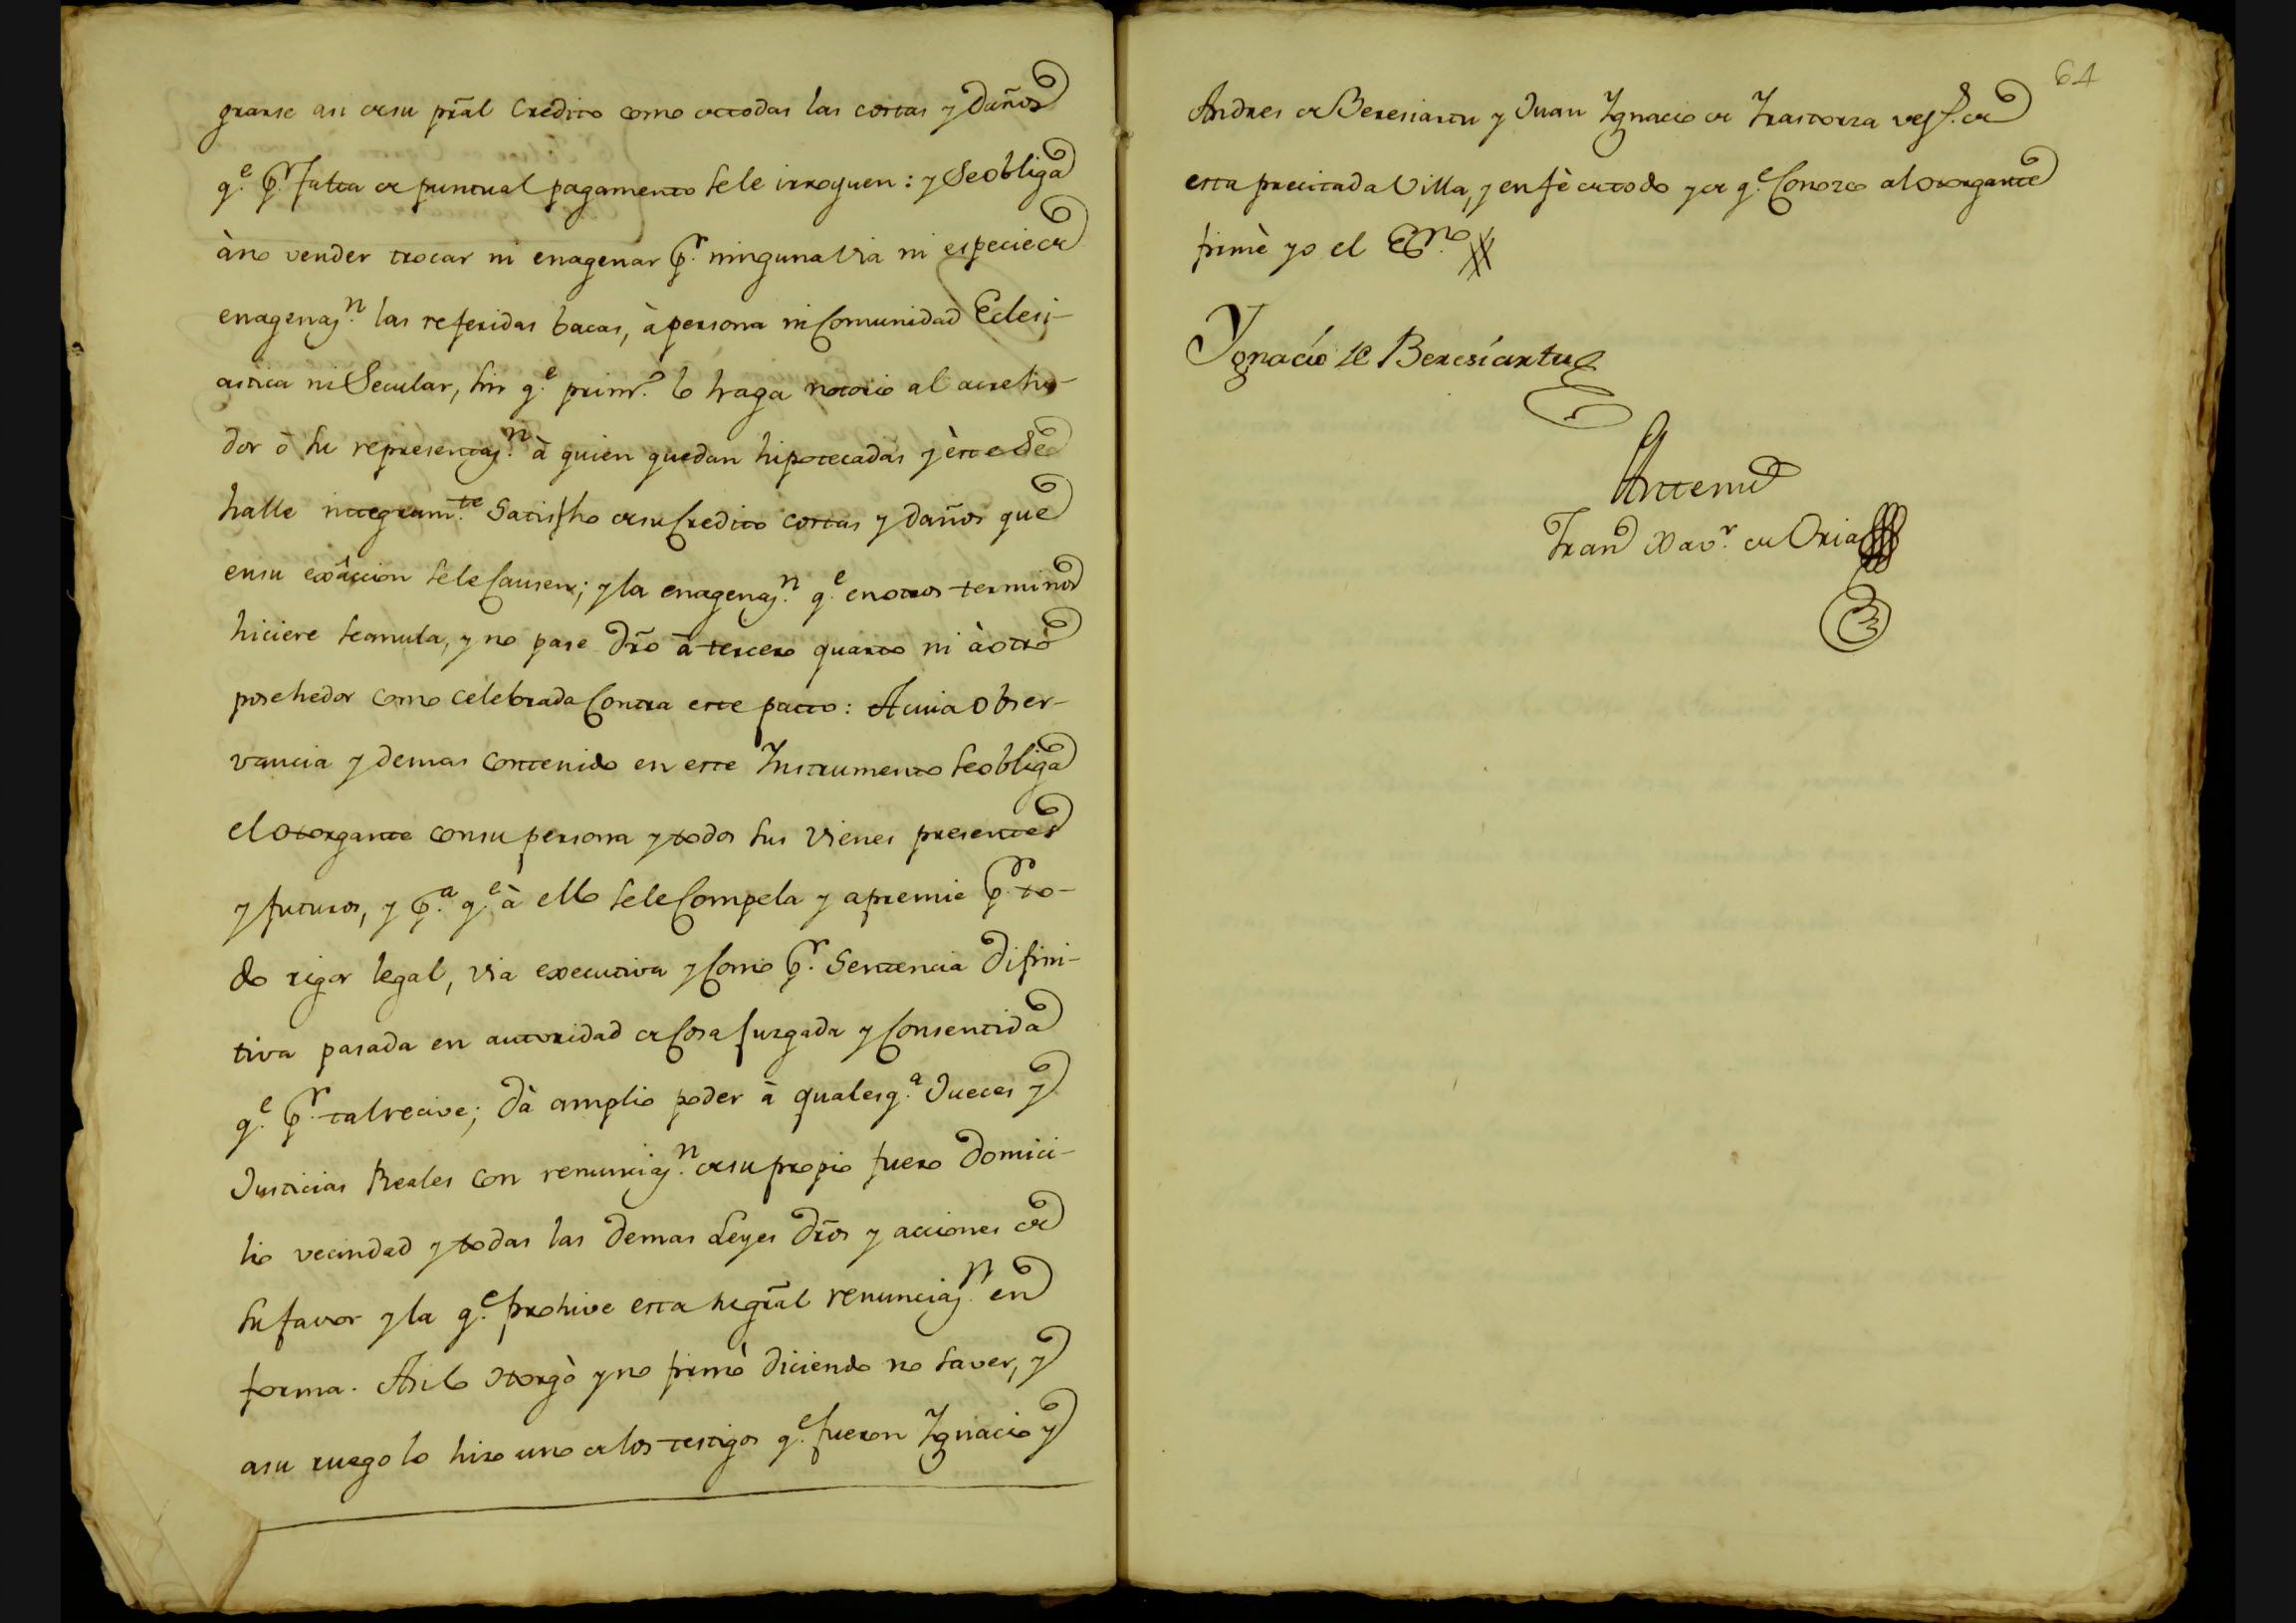 grarse asi de su pral credito como de todas las costas y daños
q.e p.r falta de puntual pagamento se le irroguen: y se obliga
à no vender trocar ni enagenar p.r ninguna via ni especie de
enagenaz.n las referidas bacas, à persona ni Comunidad Eclesi-
astica ni Secular, sin q.e primr.o lo haga notorio al acrehe-
dor ò su representaz.n à quien quedan hipotecadas y èste se
halle integram.te satisfho de su Credito costas y daños que
en su exâccion se le Causen; y la enagenaz.n q.e en otros terminos
hiciere sea nula, y no pase dro à tercero quarto ni à otro
posehedor como celebrada Contra este pacto: A cuia obser-
vancia y demas contenido en este Instrumento se obliga
el otorgante con su persona y todos sus vienes presentes
y futuros, y p.a q.e à ello se le Compela y apremie p.r to-
do rigor legal, via executiva y Como p.r Sentencia difini-
tiva pasada en autoridad de Cosa Juzgada y Consentida
q.e p.r tal recive; dà amplio poder à qualesq.a Jueces y
Justicias Reales con renunciaz.n de su propio fuero domici-
lio vecindad y todas las demas Leyes dros y acciones de
su favor y la q.e prohive esta su gral renunciaz.n en
forma. Asi lo otorgò y no firmò diciendo no saver, y
a su ruego lo hizo uno de los testigos q.e fueron Ignacio y
64
Andres de Beresiartu y Juan Ignacio de Trastorza vez.s de
esta precitada Villa, y en fè de todo y de q.e Conozco al otorgante
firmè yo el Es.no
Ygnacio de Beresiartu
Antemi
Fran Xav.r de Oria